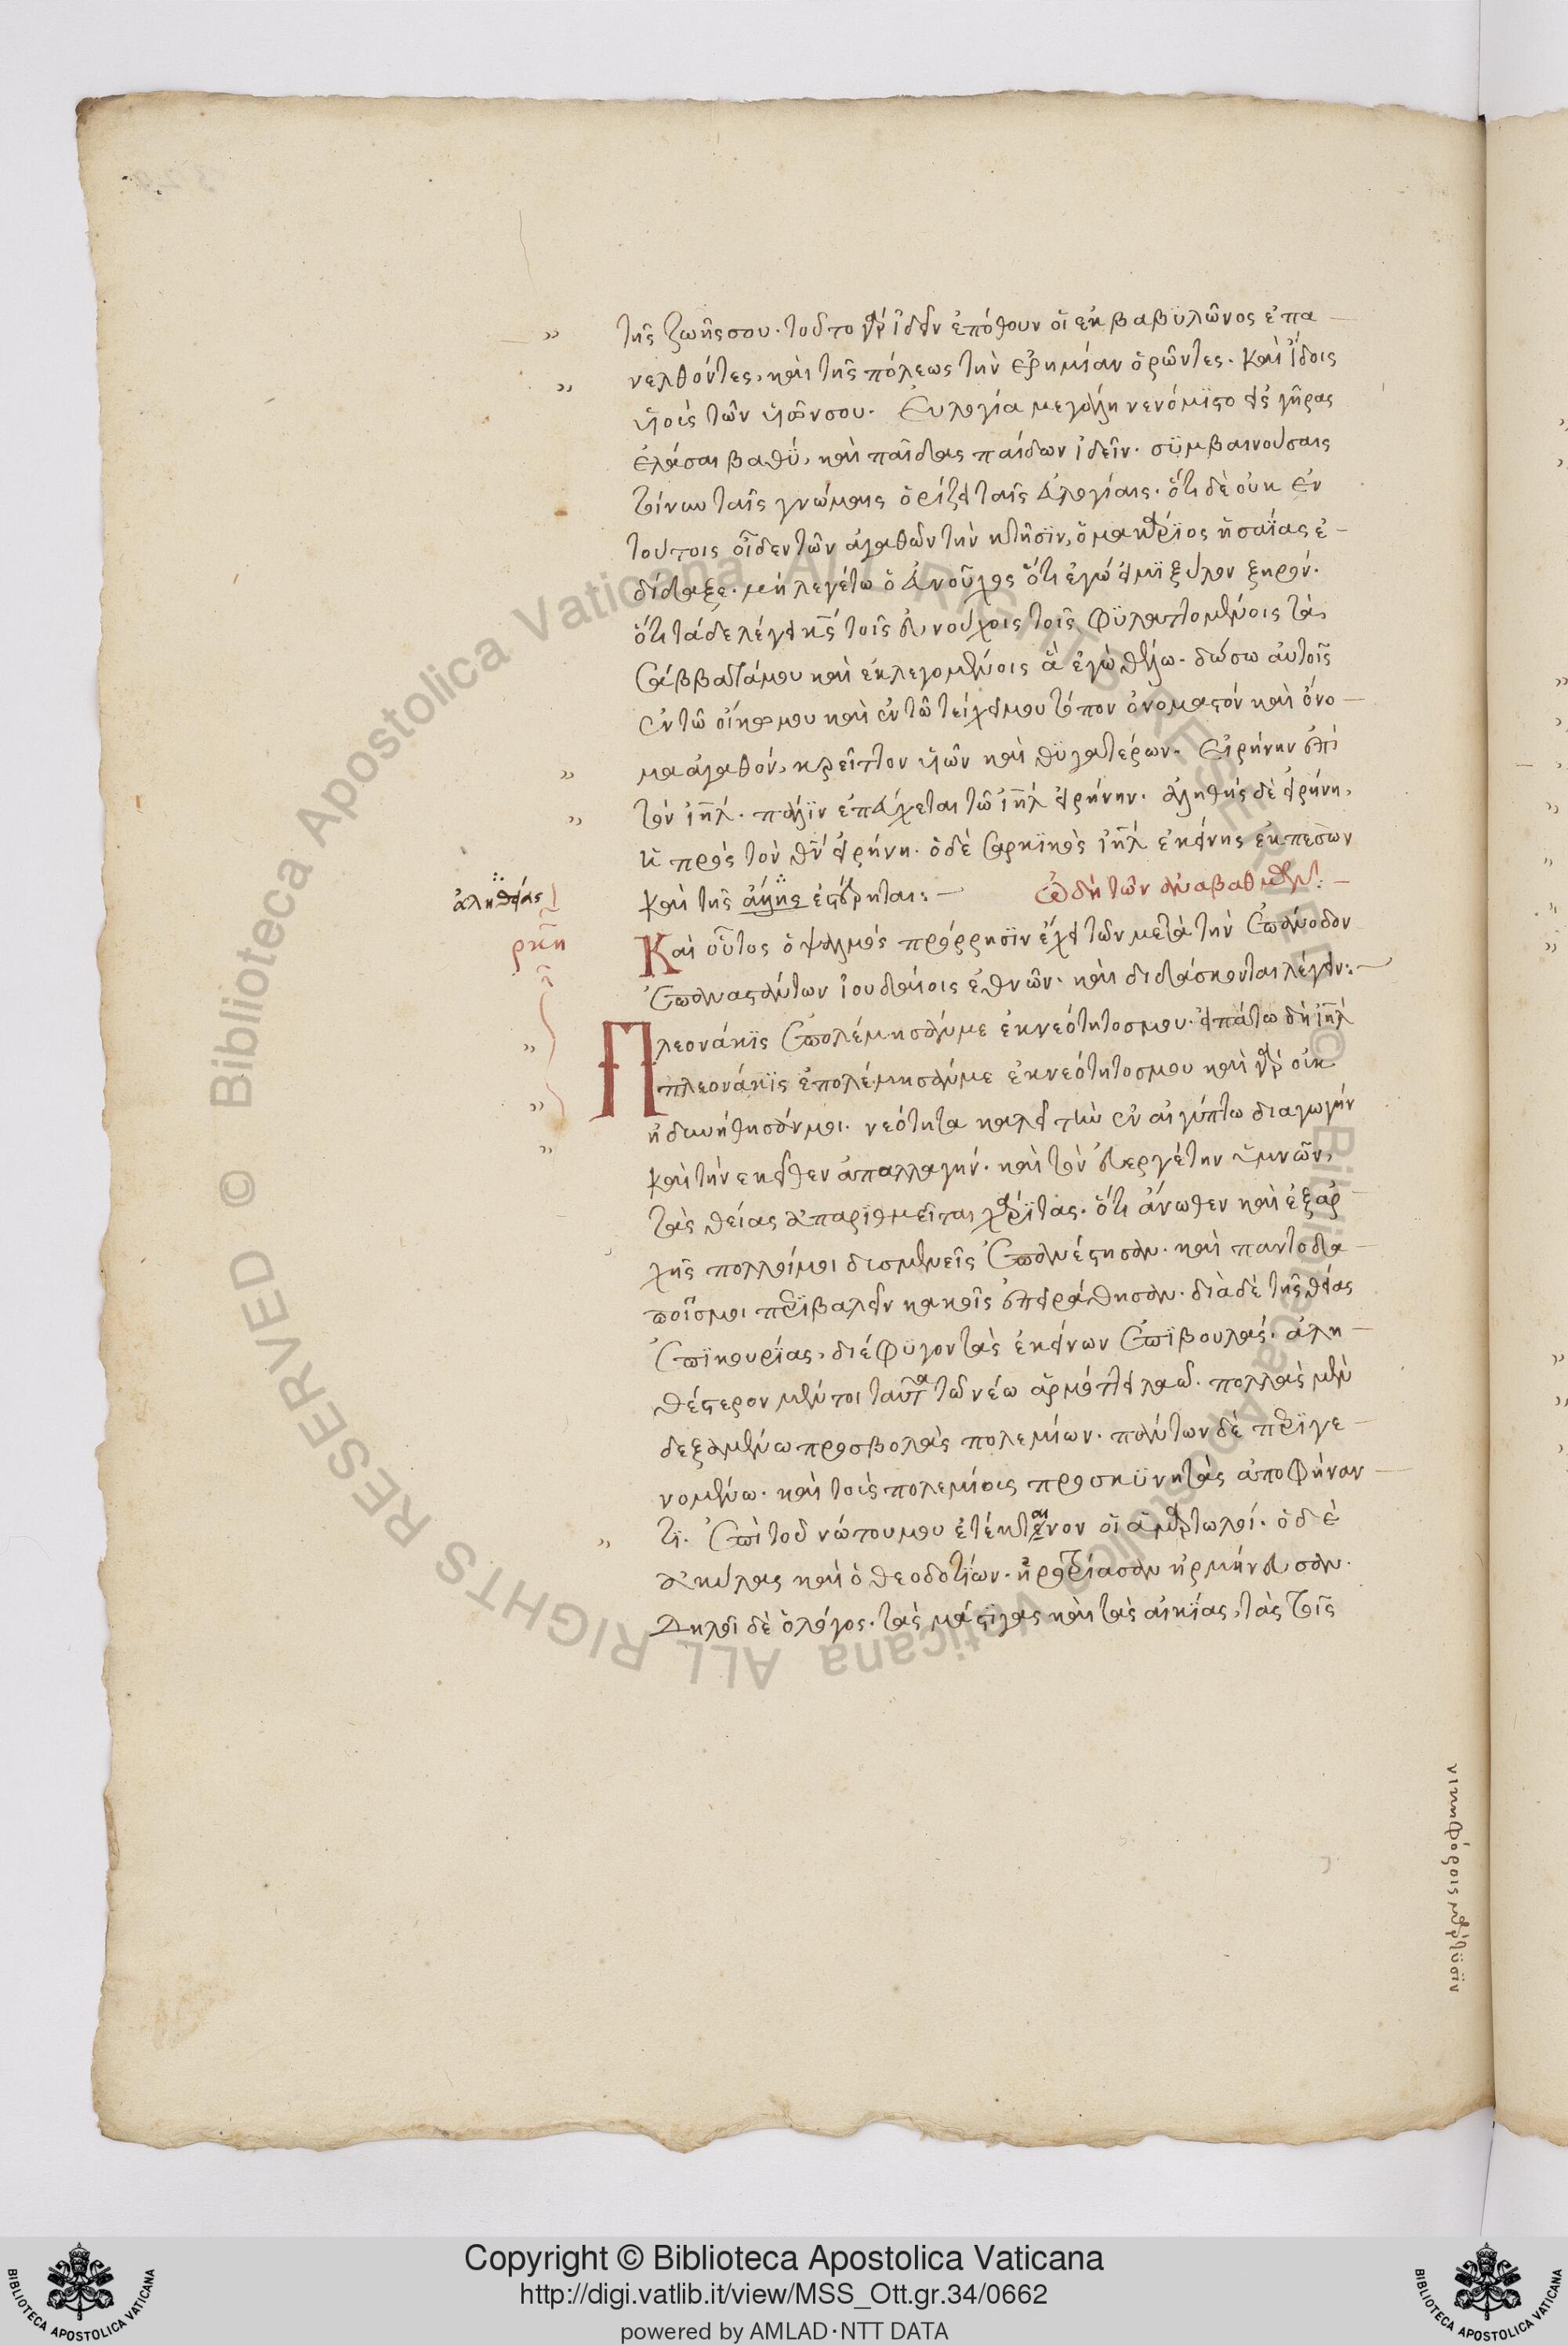 τῆς ζωῆς σου. τοῦτο γὰρ ἰδεῖν ἐπόθουν οἱ ἐκ βαβϋλῶνος ἐπα
νελθόντες, καὶ τῆς πόλεως τὴν ἐρημίαν ὁρῶντες. καὶ ἴδοις
υἱοὺς τῶν υἱῶν σου. Εὐλογία μεγάλη νενόμιστο εἰς γῆρας
ἐλάσαι βαθὺ, καὶ παῖδας παίδων ἰδεῖν. συμβαινούσαις
τοίνυν ταῖς γνώμαις ὁρίζει ταῖς εὐλογίαις. ὅτι δὲ οὐκ ἐν
τούτοις οἶδεν τῶν ἀγαθῶν τὴν κτῆσϊν, ὁ μακάρϊος ἠσαΐας ἐ
δίδαξε. μὴ λεγέτω ὁ εὐνοῦχος ὅτι ἐγώ εἰμϊ ξύλον ξηρόν.
ὅτι τάδε λέγει κς τοῖς εὐνούχοις τοῖς φϋλαττομένοις τὰ
σάββατά μου καὶ ἐκλεγομένοις ἃ ἐγὼ θέλω. δώσω αὐτοῖς
ἐν τῶ οἴκω μου καὶ ἐν τῶ τείχει μου τόπον ὀνομαστόν καὶ ὄνο
μα ἀγαθόν, κρεῖττον υἱῶν καὶ θϋγατέρων. Εἰρήνην ἐπὶ
τὸν ιηλ. πάλϊν ἐπεύχεται τῶ ιηλ εἰρήνην. ἀληθὴς δὲ εἰρήνη,
ἡ πρὸς τὸν θν εἰρήνη. ὁ δὲ σαρκϊκὸς ιηλ ἐκείνης ἐκπεσὼν
ἀληθείας
καὶ τῆς ἀλης ἐστέρηται: ᾠδὴ τῶν ἀναβαθμῶν:
ρκη
Καὶ οὗτος ὁ ψαλμὸς πρόρρησϊν ἔχει τῶν μετὰ τὴν ἐπάνοδον
ἐπαναστάντων ἰουδαίοις ἐθνῶν. καὶ διδάσκονται λέγειν:
Πλεονάκϊς ἐπολέμησάν με ἐκ νεότητός μου. εἰπάτω δὴ ιηλ
πλεονάκϊς ἐπολέμησάν με ἐκ νεότητός μου καὶ γὰρ οὐκ
ἠδυνήθησάν μοι. νεότητα καλεῖ τὴν ἐν αἰγύπτω διαγωγήν
καὶ τὴν ἐκεῖθεν ἀπαλλαγήν. καὶ τὸν εὐεργέτην ὑμνῶν,
τὰς θείας ἀπαρϊθμεῖται χάρϊτας. ὅτι ἄνωθεν καὶ ἐξ ἀρ
χῆς πολλοί μοι δυσμενεῖς ἐπανέστησαν. καὶ παντοδα
ποῖς μοι περϊβαλεῖν κακοῖς ἐπειράθησαν. διὰ δὲ τῆς θείας
ἐπϊκουρίας, διέφϋγον τὰς ἐκείνων ἐπϊβουλάς. ἀλη
θέστερον μέντοι ταῦτα τῶ νέω ἁρμόττει λαῶ. πολλὰς μὲν
δεξαμένω προσβολὰς πολεμίων. πάντων δὲ περϊγε
νομένω. καὶ τοὺς πολεμίους προσκϋνητὰς ἀποφήναν
τϊ. ἐπὶ τοῦ νώτου μου ἐτέκταινον οἱ ἁμαρτωλοί. ὁ δὲ
ἀκύλας καὶ ὁ θεοδοτίων. ἠροτρίασαν ἡρμήνευσαν.
Δηλοῖ δὲ ὁ λόγος. τὰς μάστϊγας καὶ τὰς αἰκίας, τὰς τοῖς
νικηφόροις μάρτϋσϊν
Copyright © Biblioteca Apostolica Vaticana
http://digi.vatlib.it/view/MSS_Ott.gr.34/0662
powered by AMLAD·NTT DATA